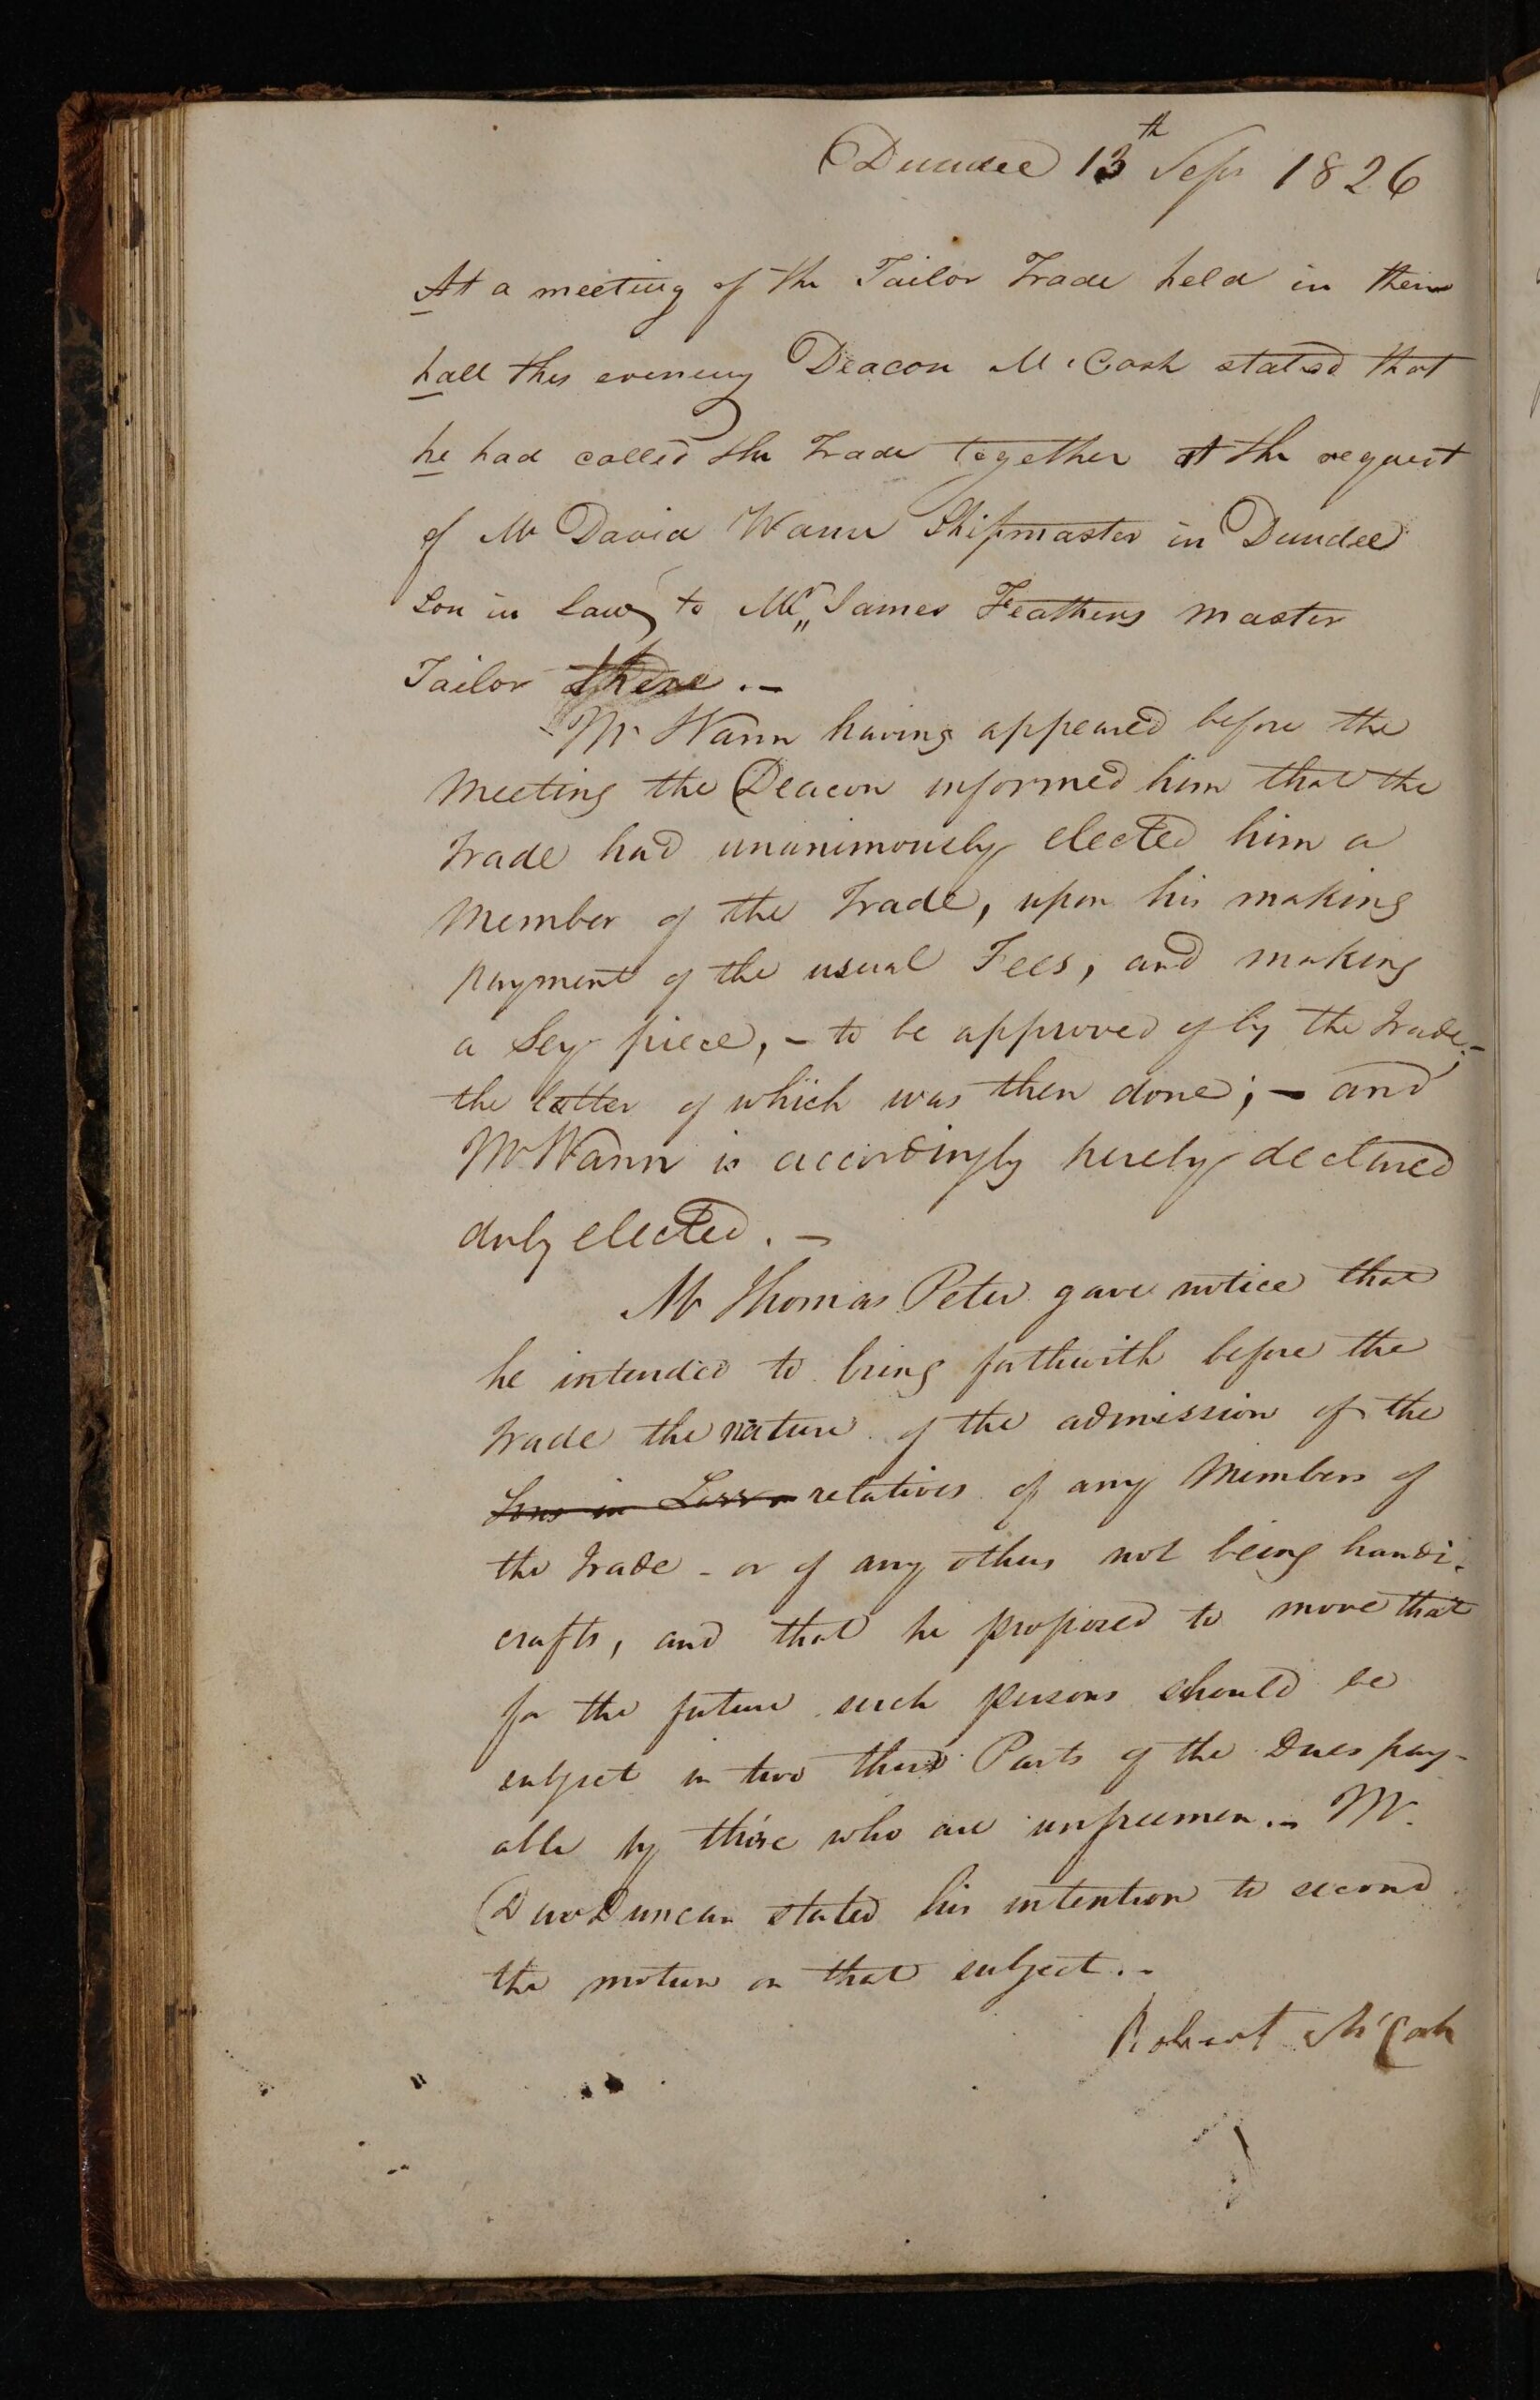 Dundee 13th Sepr 1826
At a meeting of the Tailor Trade held in their
hall this evening Deacon McCash stated that
he had called the Trade together at the request
of Mr David Wann Shipmaster in Dundee
Son in Law to Mr James Feathers master
Tailor there .-
Mr Wann having appeared before the
Meeting the Deacon informed him that the
Trade had unanimously elected him a
Member of the Trade, upon his making
payment of the usual Fees, and making
a Sey piece, - to be approved of by the Trade,-
the latter of which was then done; - and
Mr Wann is accordingly hereby declared
duly elected. -
Mr Thomas Peter gave notice that
he intended to bring forthwith before the
Trade the nature of the admission of the
Sons in Law relatives of any Members of
the Trade - or of any others not being handi-
crafts, and that he proposed to move that
for the future such persons should be
subject in two third Parts of the Dues pay-
able by those who are unfreemen .- Mr.
Duncan stated his intention to second
the motion on that subject .-
Robert McCash